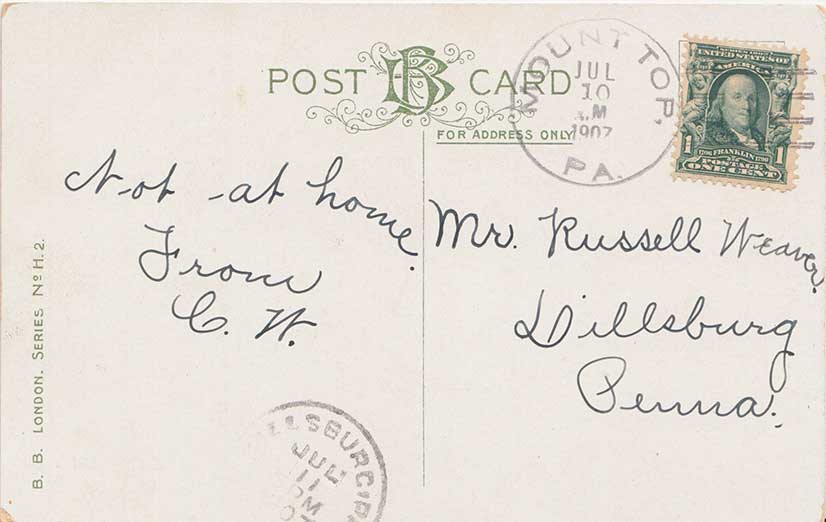 POST BB CARD
FOR ADDRESS ONLY
MOUNT TOP,
JUL
10
A.M
1907
PA.
SERIES 1902
UNITED STATES OF
AMERICA
1706 FRANKLIN 1790
1 POSTAGE 1
ONE CENT
Not at home.
From
C. W.
Mr. Russell Weaver.
Dillsburg
Penna.
LLSBURG, PA
JUL
11
PM
07
B. B. LONDON. SERIES No H. 2.